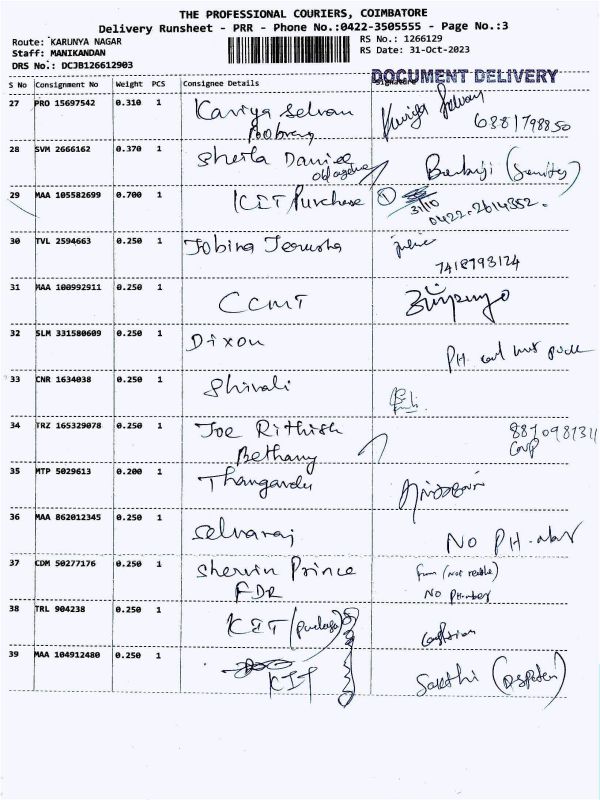 THE PROFESSIONAL COURIERS, COIMBATORE
Delivery Runsheet - PRR - Phone No.:0422-3505555 - Page No.:3
Route: KARUNYA NAGAR
RS No.: 1266129
Staff: MANIKANDAN
RS Date: 31-Oct-2023
DRS No.: DCJB126612903
DOCUMENT DELIVERY
S No Consignment No Weight PCS Consignee Details Signature
27 PRO 15697542 0.310 1 Kaviya Selvan
6381798850
28 SVM 2666162 0.370 1 Sheila Daniel
29 MAA 105582699 0.700 1 KIT/Purchase 1
31/10
0422-2614352.
30 TVL 2594663 0.250 1 Jobina Jerusha
7418793124
31 MAA 100992911 0.250 1 CCMT
32 SLM 331580609 0.250 1 Dixon
PH.
33 CNR 1634038 0.250 1 Shivali
34 TRZ 165329078 0.250 1 Joe Rithish
Bethany
35 MTP 5029613 0.200 1
36 MAA 862012345 0.250 1 Selvaraj
NO PH.
37 CDM 50277176 0.250 1 Shervin Prince
FDR
No PH.
38 TRL 904238 0.250 1 KIT
39 MAA 104912480 0.250 1 KIT
Sakthi